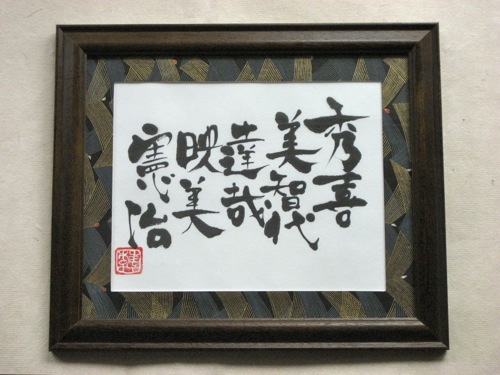 秀喜
美智代
達哉
映美
憲治